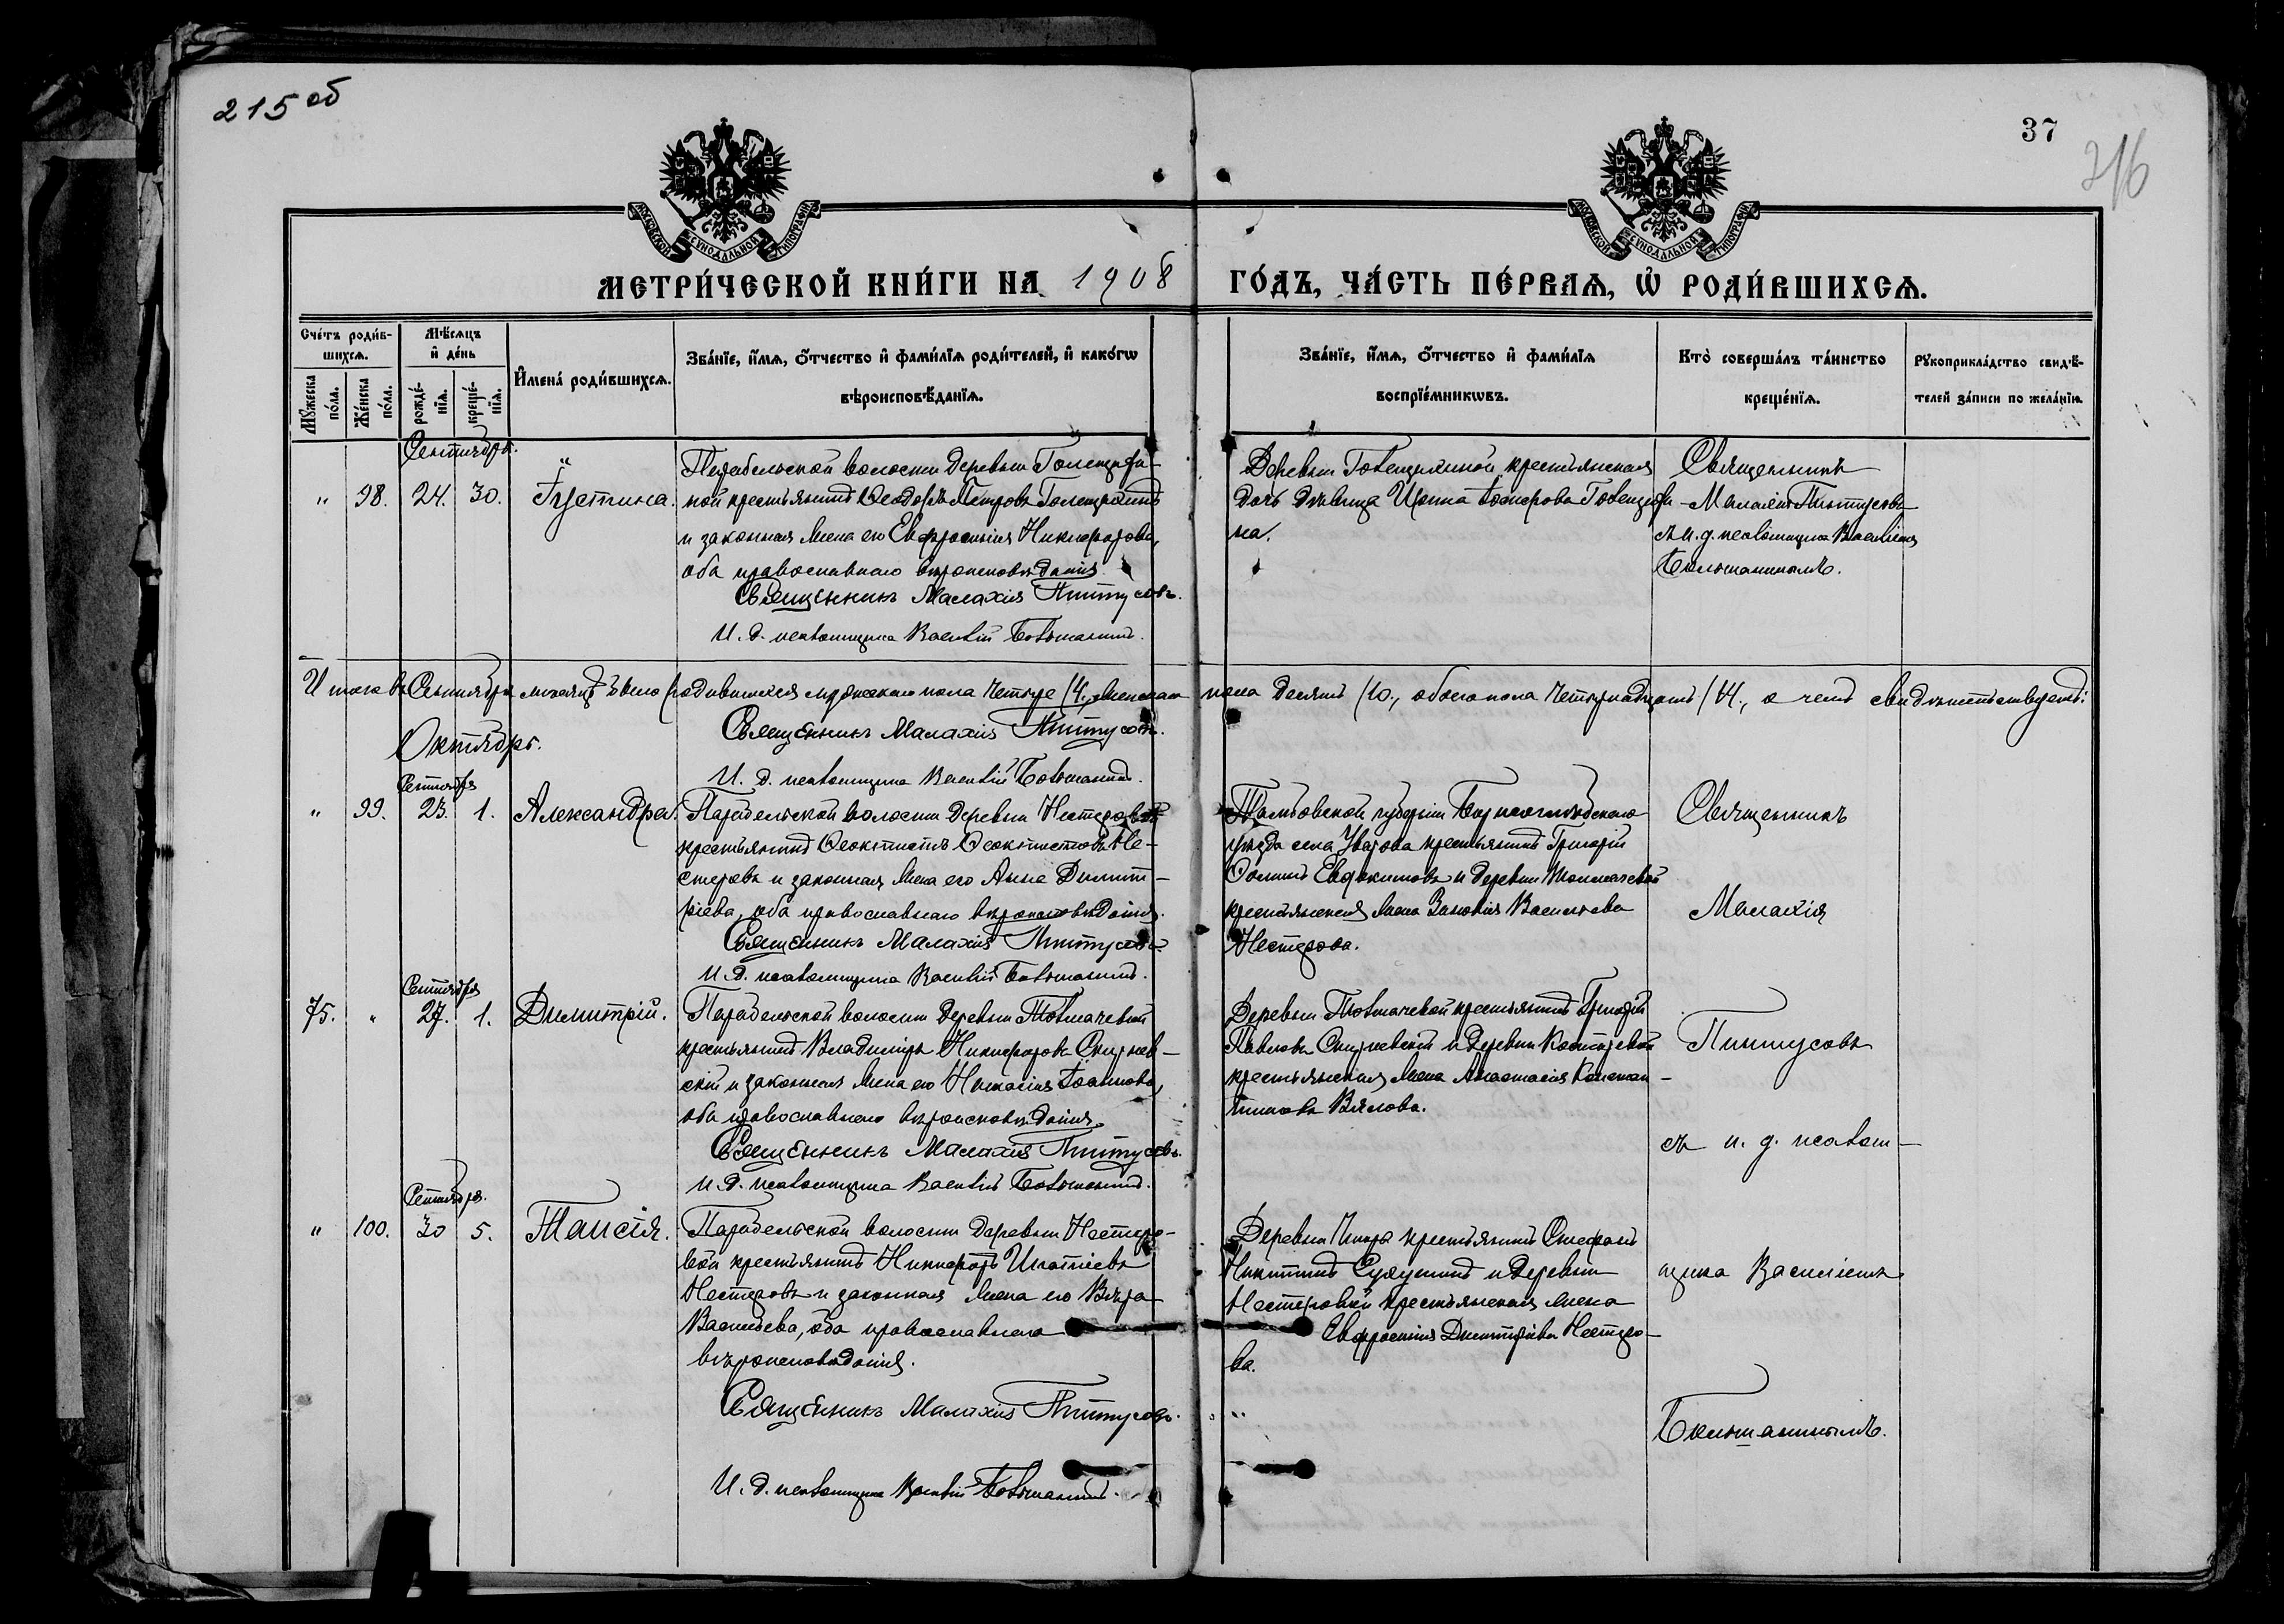 215 об
37
216
МОСКОВСКОЙ СУНОДАЛЬНОЙ ТИПОГРАФІИ
МОСКОВСКОЙ СУНОДАЛЬНОЙ ТИПОГРАФІИ
МЕТРИ́ЧЕСКОЙ КНИ́ГИ НА 1908 ГО́ДЪ, ЧА́СТЬ ПЕ́РВАѦ, Ѡ҆ РОДИ́ВШИХСѦ.
Сче́тъ роди́в-
шихсѧ.
Мѣ́сѧцъ
и҆ де́нь
И҆мена̀ роди́вшихсѧ.
Зва́нїе, и҆́мѧ, ѻ҆́тчество и҆ фами́лїѧ роди́телей, и҆ како́гѡ
вѣроисповѣ́данїѧ.
Зва́нїе, и҆́мѧ, ѻ҆́тчество и҆ фами́лїѧ
воспрїе́мникѡвъ.
Кто̀ соверша́лъ та́инство
креще́нїѧ.
Рꙋкоприкла́дство свидѣ́-
телей за́писи по жела́нїю.
Мꙋ́жеска
по́ла.
Же́нска
по́ла.
рожде́-
нїѧ.
креще́-
нїѧ.
Сентябрь.
" 98. 24. 30. Іустина.
Парабельской волости деревни Голещихи-
ной крестьянинъ Ѳеодоръ Петровъ Голещихинъ
и законная жена его Евфросинія Никифорова,
оба православнаго вѣроисповѣданія
Священникъ Малахія Пиптусовъ.
И. д. псаломщика Василій Большанинъ.
Деревни Голещихиной крестьянская
дочь дѣвица Ирина Голещихи-
на.
Священникъ
Малахія Пиптусовъ
съ и. д. псаломщика Василіемъ
Большанинымъ.
Итого въ Сентябрѣ мѣсяцѣ было родившихся мужескаго пола четыре /4., женскаго пола десять /10., обоего пола четырнадцать /14., о чемъ свидѣтельствуемъ:
Священникъ Малахія Пиптусовъ.
Октябрь.
И. д. псаломщика Василій Большанинъ.
Сентября
" 99. 23. 1. Александра.
Парабельской волости деревни Нестеровой
крестьянинъ Ѳеоктистъ Ѳеоктистовъ Не-
стеровъ и законная жена его Анна Димит-
ріева, оба православнаго вѣроисповѣданія.
Священникъ Малахія Пиптусовъ
И. д. псаломщика Василій Большанинъ.
Тамбовской губерніи Борисоглѣбскаго
уѣзда села Уварова крестьянинъ Григорій
Ѳоминъ Евдокимовъ и деревни Толмачевой
крестьянская жена Зиновія Васильева
Нестерова.
Священникъ
Малахія
Сентября
75. " 27. 1. Димитрій.
Парабельской волости деревни Толмачевой
крестьянинъ Владиміръ Никифоровъ Сигнев-
скій и законная жена его Наталія Іоаннова,
оба православнаго вѣроисповѣданія.
Священникъ Малахія Пиптусовъ.
И. д. псаломщика Василій Большанинъ.
Деревни Толмачевой крестьянинъ Григорій
Павловъ и деревни Костаревой
крестьянская жена Анастасія Констан-
тинова Вялова.
Пиптусовъ
съ и. д. псалом-
Сентября.
" 100. 30 5. Таисія.
Парабельской волости деревни Нестеро-
вой крестьянинъ Никифоръ Игнатіевъ
Нестеровъ и законная жена его Вѣра
Васильева, оба православнаго
вѣроисповѣданія.
Священникъ Малахія Пиптусовъ.
И. д. псаломщика Василій Большанинъ.
Деревни крестьянинъ Стефанъ
Никитинъ и деревни
Нестеровой крестьянская жена
Евфросинія Димитріева Нестеро-
ва.
щика Василіемъ
Большанинымъ.